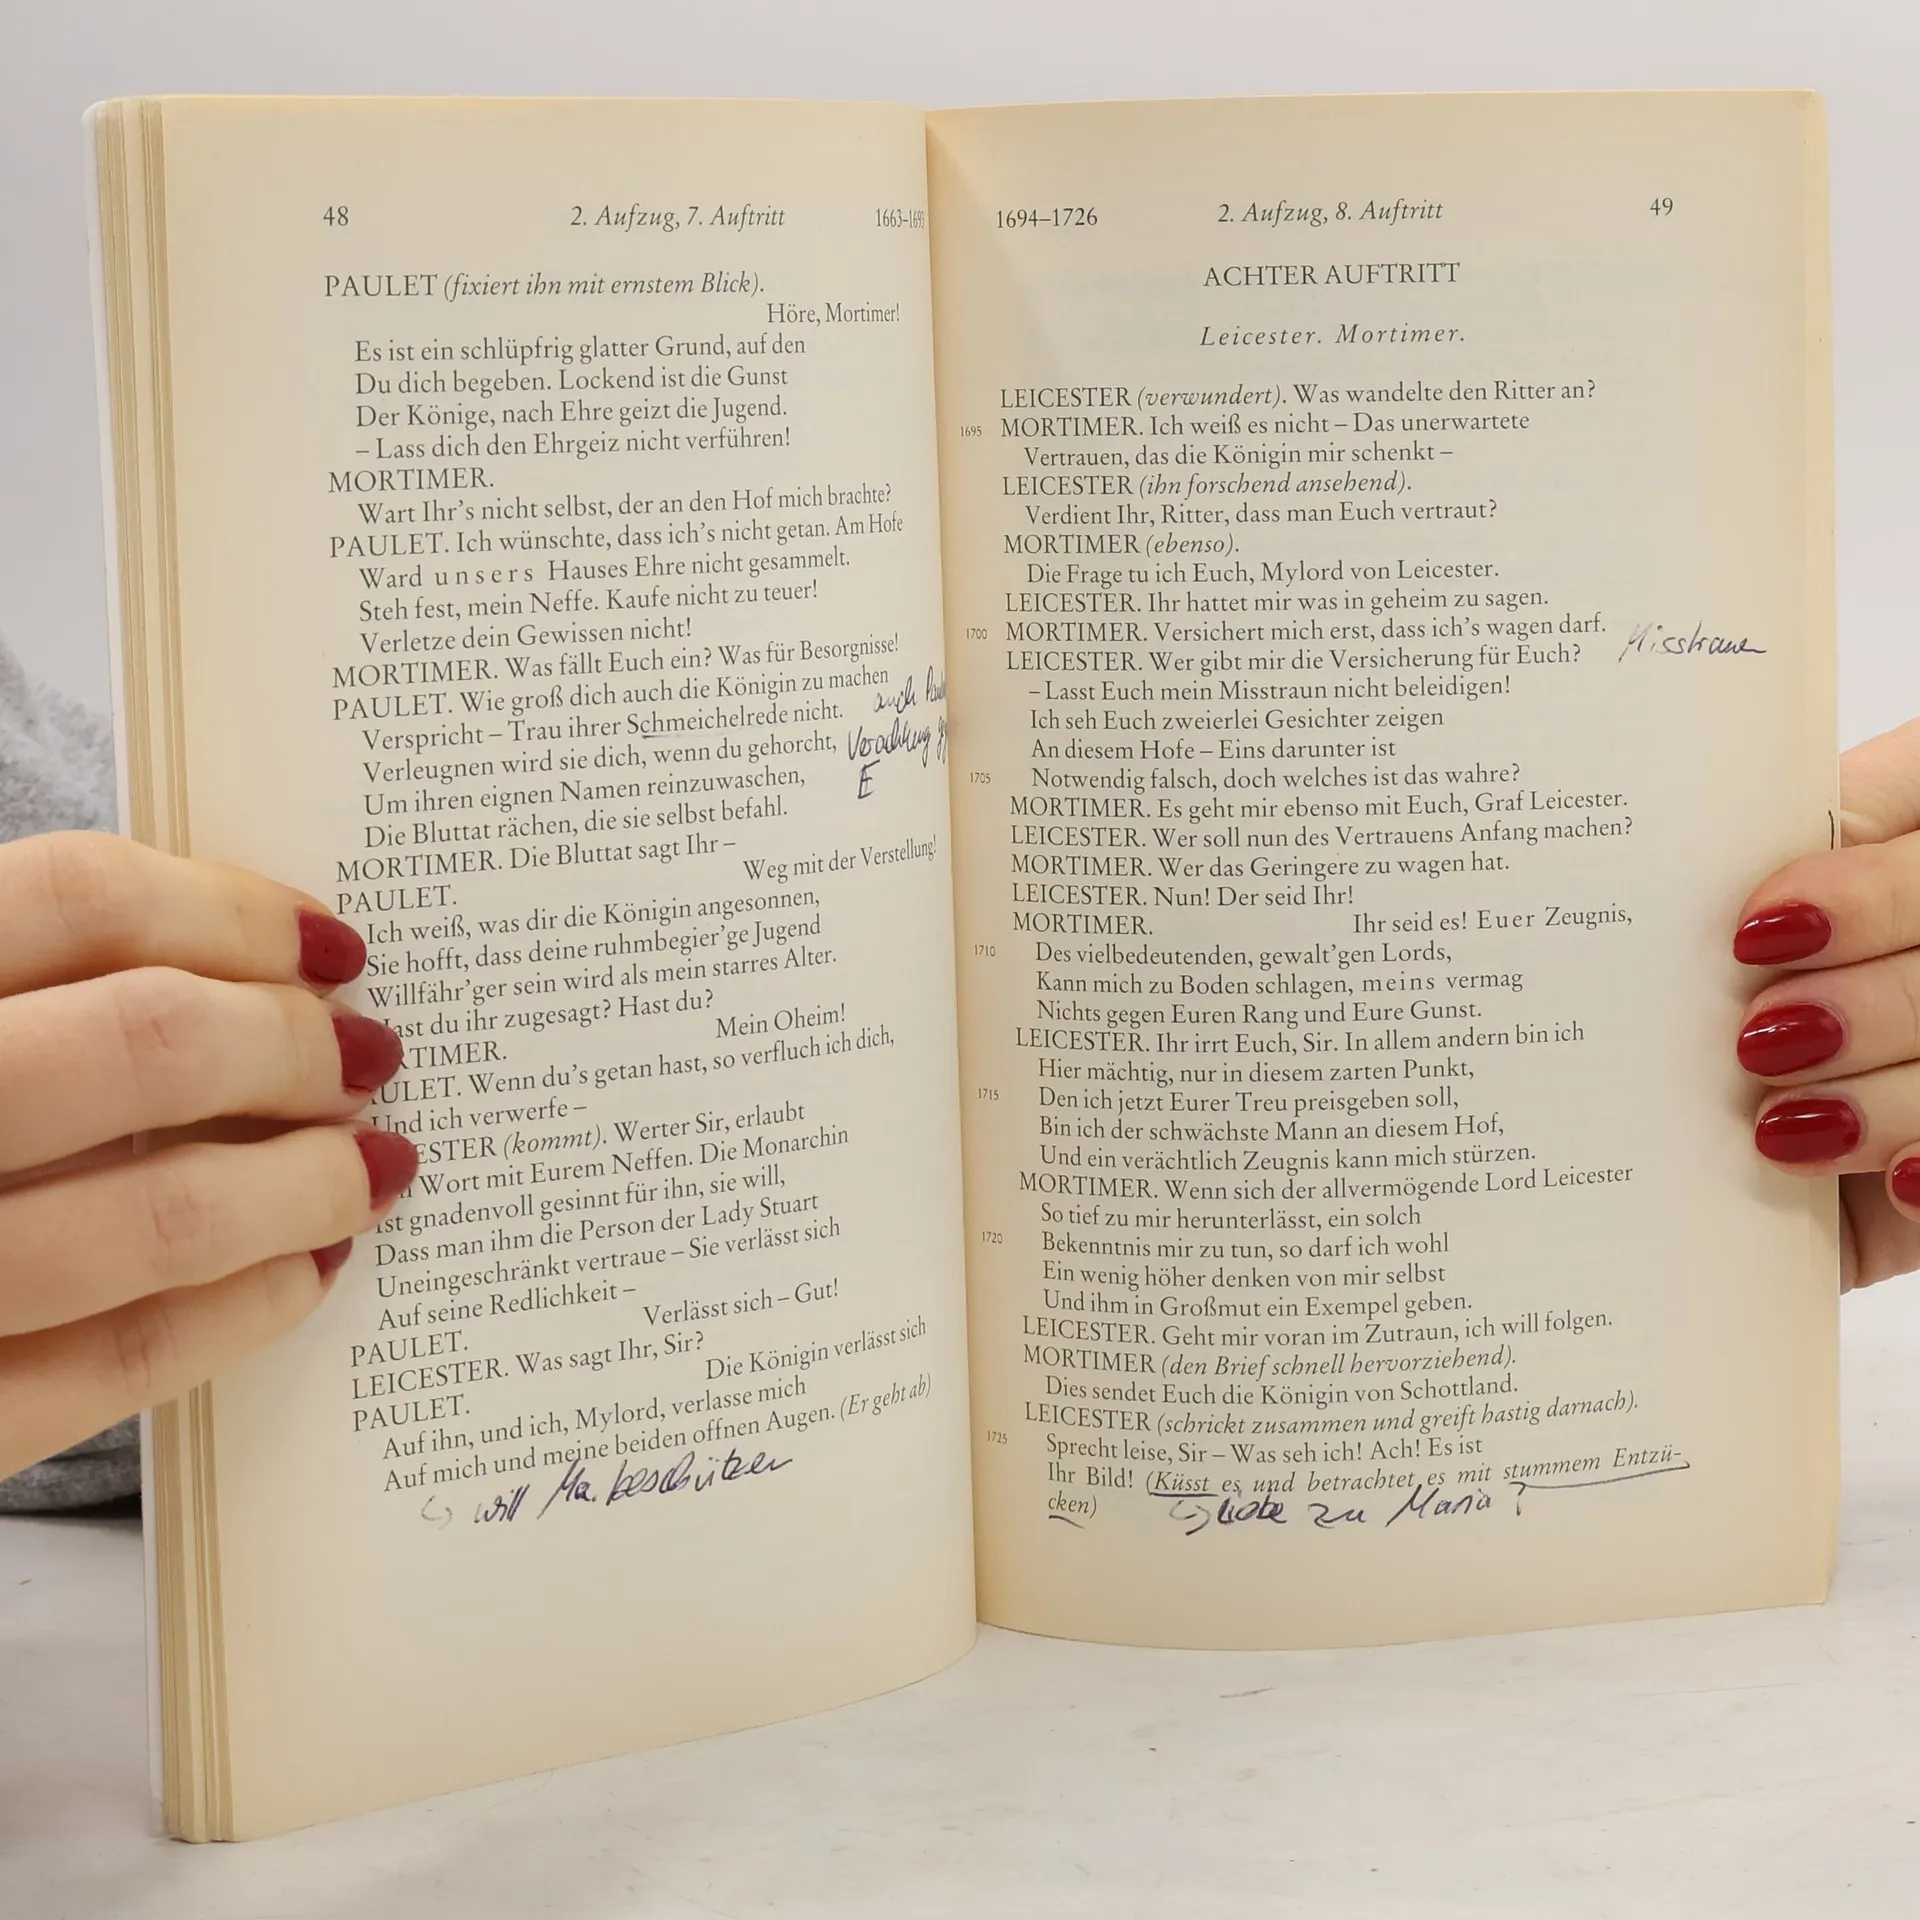 48 2. Aufzug, 7. Auftritt 1663–1693
PAULET (fixiert ihn mit ernstem Blick).
Höre, Mortimer!
Es ist ein schlüpfrig glatter Grund, auf den
Du dich begeben. Lockend ist die Gunst
Der Könige, nach Ehre geizt die Jugend.
– Lass dich den Ehrgeiz nicht verführen!
MORTIMER.
Wart Ihr's nicht selbst, der an den Hof mich brachte?
PAULET. Ich wünschte, dass ich's nicht getan. Am Hofe
Ward unsers Hauses Ehre nicht gesammelt.
Steh fest, mein Neffe. Kaufe nicht zu teuer!
Verletze dein Gewissen nicht!
MORTIMER. Was fällt Euch ein? Was für Besorgnisse!
PAULET. Wie groß dich auch die Königin zu machen
Verspricht – Trau ihrer Schmeichelrede nicht. auch
Verleugnen wird sie dich, wenn du gehorcht, Verachtung
Um ihren eignen Namen reinzuwaschen, E
Die Bluttat rächen, die sie selbst befahl.
MORTIMER. Die Bluttat sagt Ihr –
PAULET. Weg mit der Verstellung!
Ich weiß, was dir die Königin angesonnen,
Sie hofft, dass deine ruhmbegier'ge Jugend
Willfähr'ger sein wird als mein starres Alter.
ast du ihr zugesagt? Hast du?
RTIMER. Mein Oheim!
ULET. Wenn du's getan hast, so verfluch ich dich,
Und ich verwerfe –
ESTER (kommt). Werter Sir, erlaubt
Wort mit Eurem Neffen. Die Monarchin
Ist gnadenvoll gesinnt für ihn, sie will,
Dass man ihm die Person der Lady Stuart
Uneingeschränkt vertraue – Sie verlässt sich
Auf seine Redlichkeit –
PAULET. Verlässt sich – Gut!
LEICESTER. Was sagt Ihr, Sir?
PAULET. Die Königin verlässt sich
Auf ihn, und ich, Mylord, verlasse mich
Auf mich und meine beiden offnen Augen. (Er geht ab)
↪ will Ma. beschützen
1694–1726 2. Aufzug, 8. Auftritt 49
ACHTER AUFTRITT
Leicester. Mortimer.
LEICESTER (verwundert). Was wandelte den Ritter an?
1695 MORTIMER. Ich weiß es nicht – Das unerwartete
Vertrauen, das die Königin mir schenkt –
LEICESTER (ihn forschend ansehend).
Verdient Ihr, Ritter, dass man Euch vertraut?
MORTIMER (ebenso).
Die Frage tu ich Euch, Mylord von Leicester.
LEICESTER. Ihr hattet mir was in geheim zu sagen.
1700 MORTIMER. Versichert mich erst, dass ich's wagen darf.
LEICESTER. Wer gibt mir die Versicherung für Euch? Misstrauen
– Lasst Euch mein Misstraun nicht beleidigen!
Ich seh Euch zweierlei Gesichter zeigen
An diesem Hofe – Eins darunter ist
1705 Notwendig falsch, doch welches ist das wahre?
MORTIMER. Es geht mir ebenso mit Euch, Graf Leicester.
LEICESTER. Wer soll nun des Vertrauens Anfang machen?
MORTIMER. Wer das Geringere zu wagen hat.
LEICESTER. Nun! Der seid Ihr!
MORTIMER. Ihr seid es! Euer Zeugnis,
1710 Des vielbedeutenden, gewalt'gen Lords,
Kann mich zu Boden schlagen, meins vermag
Nichts gegen Euren Rang und Eure Gunst.
LEICESTER. Ihr irrt Euch, Sir. In allem andern bin ich
Hier mächtig, nur in diesem zarten Punkt,
1715 Den ich jetzt Eurer Treu preisgeben soll,
Bin ich der schwächste Mann an diesem Hof,
Und ein verächtlich Zeugnis kann mich stürzen.
MORTIMER. Wenn sich der allvermögende Lord Leicester
So tief zu mir herunterlässt, ein solch
1720 Bekenntnis mir zu tun, so darf ich wohl
Ein wenig höher denken von mir selbst
Und ihm in Großmut ein Exempel geben.
LEICESTER. Geht mir voran im Zutraun, ich will folgen.
MORTIMER (den Brief schnell hervorziehend).
Dies sendet Euch die Königin von Schottland.
LEICESTER (schrickt zusammen und greift hastig darnach).
1725 Sprecht leise, Sir – Was seh ich! Ach! Es ist
Ihr Bild! (Küsst es und betrachtet es mit stummem Entzü-
cken) ↪ Liebe zu Maria ?